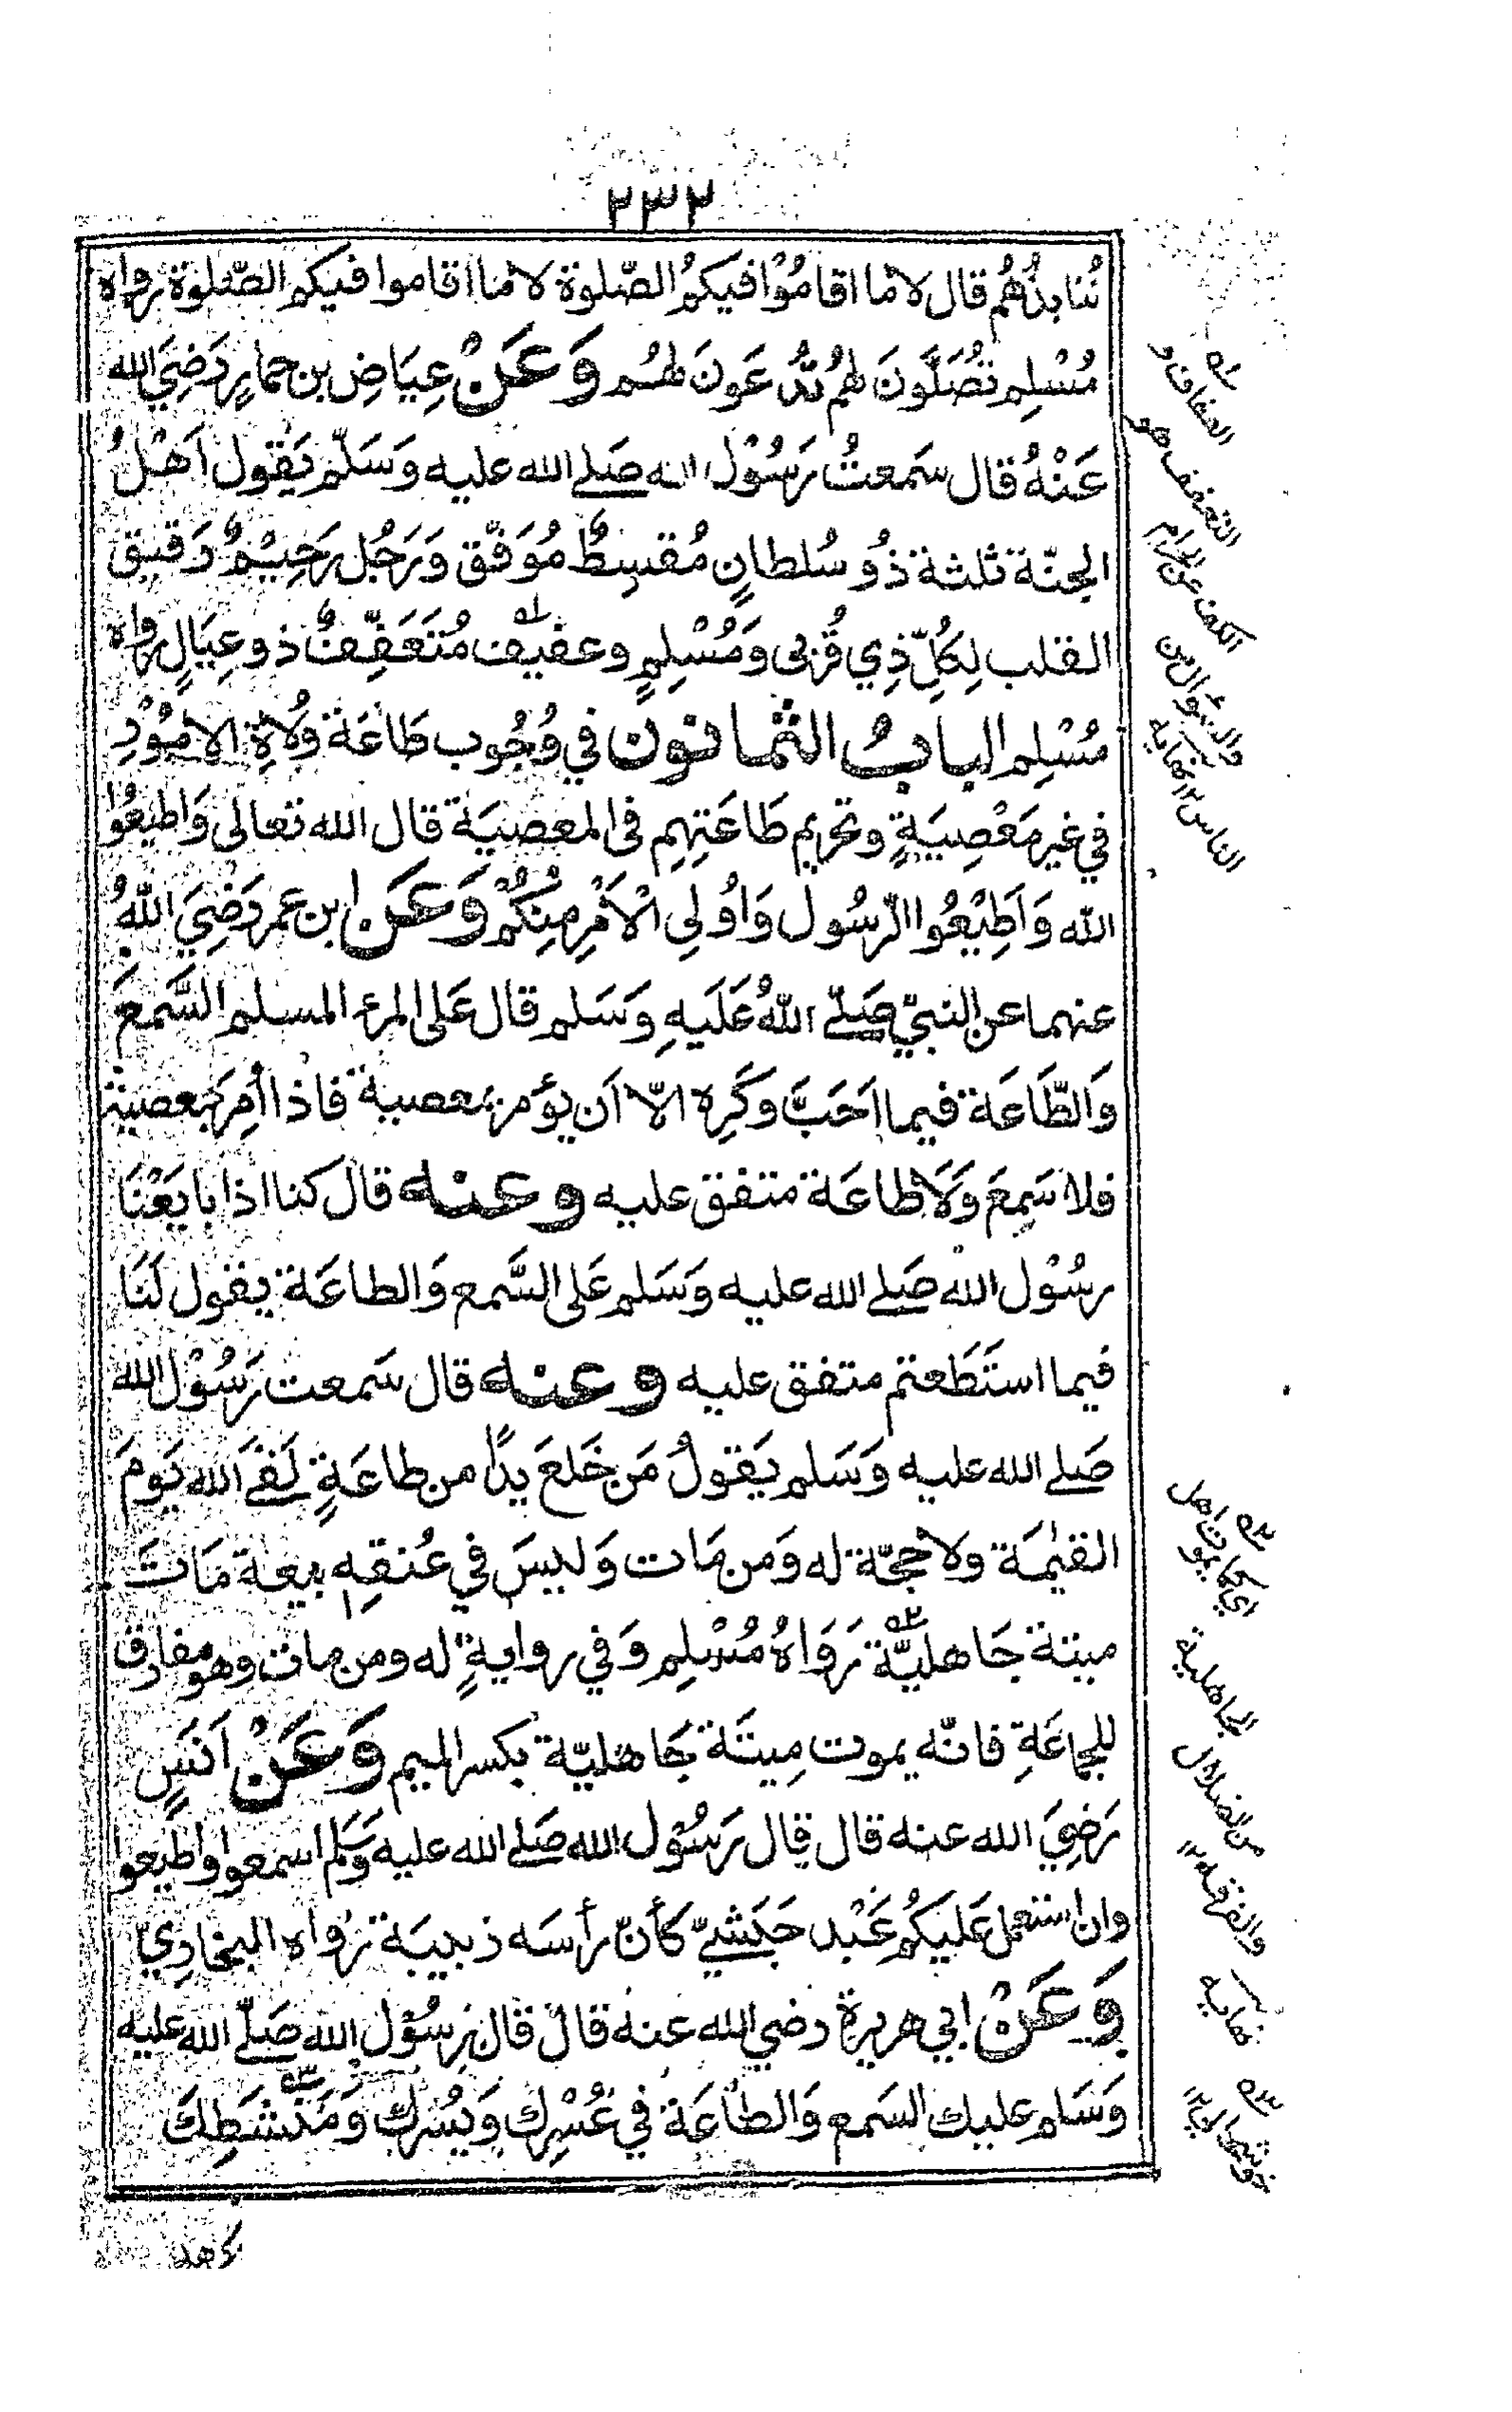 ٢٣٢
نُنَابِذُهُم قال لا ما اقامُوْا فيكمُ الصّلوة لا ما اقاموا فيكم الصّلوة رواه
مُسْلِم تُصَلُّونَ لهُم تَدْعَونَ لهُم وَعَنْ عِيَاضِ بن حمارٍ رَضِيَ الله
عَنْهُ قال سَمعتُ رَسُوْل الله صَلے الله عليه وَسَلّم يَقول اَهْلُ
الجنّة ثلثة ذُو سُلطانٍ مُقسِطٌ مُوَفّق وَرَجُل رَحِيْمٌ رَقيق
القلب لِكُلِّ ذِي قُربى وَمُسْلِمٍ وعفيف مُتَعَفِّفٌ ذو عِيَالٍ رواه
مُسْلِم البابُ الثمانون في وُجُوب طَاعَة وُلاةِ الامُوْرِ
في غير مَعْصِيَةٍ وتحريم طَاعَتِهِم فى المعصيَة قال الله تعالى وَاطيعُوا
الله وَاَطِيْعُوا الرّسُول وَاُولِى الْاَمْرِ مِنْكُمْ وَعَن ابن عمر رَضِيَ اللهُ
عنهما عن النبيّ صَلّے اللهُ عَلَيهِ وَسَلم قال عَلى المرء المسلم السَّمعَ
وَالطَّاعَة فيما اَحَبَّ وَكَرِه الّا اَن يؤمر بمعصية فاذا أُمِرَ بمعصية
فلا سَمِعَ وَلَا طاعَة متفق عليه وعنه قال كنا اذا بايَعْنَا
رسُوْل الله صَلے الله عليه وَسَلم عَلى السَّمع وَالطاعَة يقول لَنَا
فيما استَطَعتم متفق عليه وعنه قال سَمعت رَسُوْل الله
صَلے الله عليه وَسَلم يَقولُ مَن خَلعَ يدًا من طاعَةٍ لَقےَ الله يَومَ
القيٰمَة ولا حجّة له وَمن مَات وَليسَ في عُنقِهِ بيعة مَاتَ
ميتة جَاهليّة رَوَاهُ مُسْلِم وَفي روايةٍ له ومن مات وهو مفارق
للجماعَةِ فانّه يموت مِيتَة جَاهليّة بكسر الميم وَعَنْ اَنَسٍ
رَضِيَ الله عنه قال قال رَسُوْل الله صَلے الله عليه وَسَلم اسمعوا واطيعوا
وان استعمل عَليكُم عَبْد حَبَشيّ كَأنّ رأسَه زبيبَة رَوَاه البخاريّ
وَعَنْ ابي هريرة رضي الله عنه قال قال رسُوْل الله صَلّے الله عليه
وَسَلم عليك السَمع وَالطاعَة في عُسْرِك وَيُسْرك وَمَنْشَطِكَ
له العفاف و
التعفف هو
الكف عن الحرام
والسّوال من
الناس ١٢ نهايه
٢ه اي كما يموت اهل
الجاهلية
من الضلال
والفرقة ١٢
نهايه